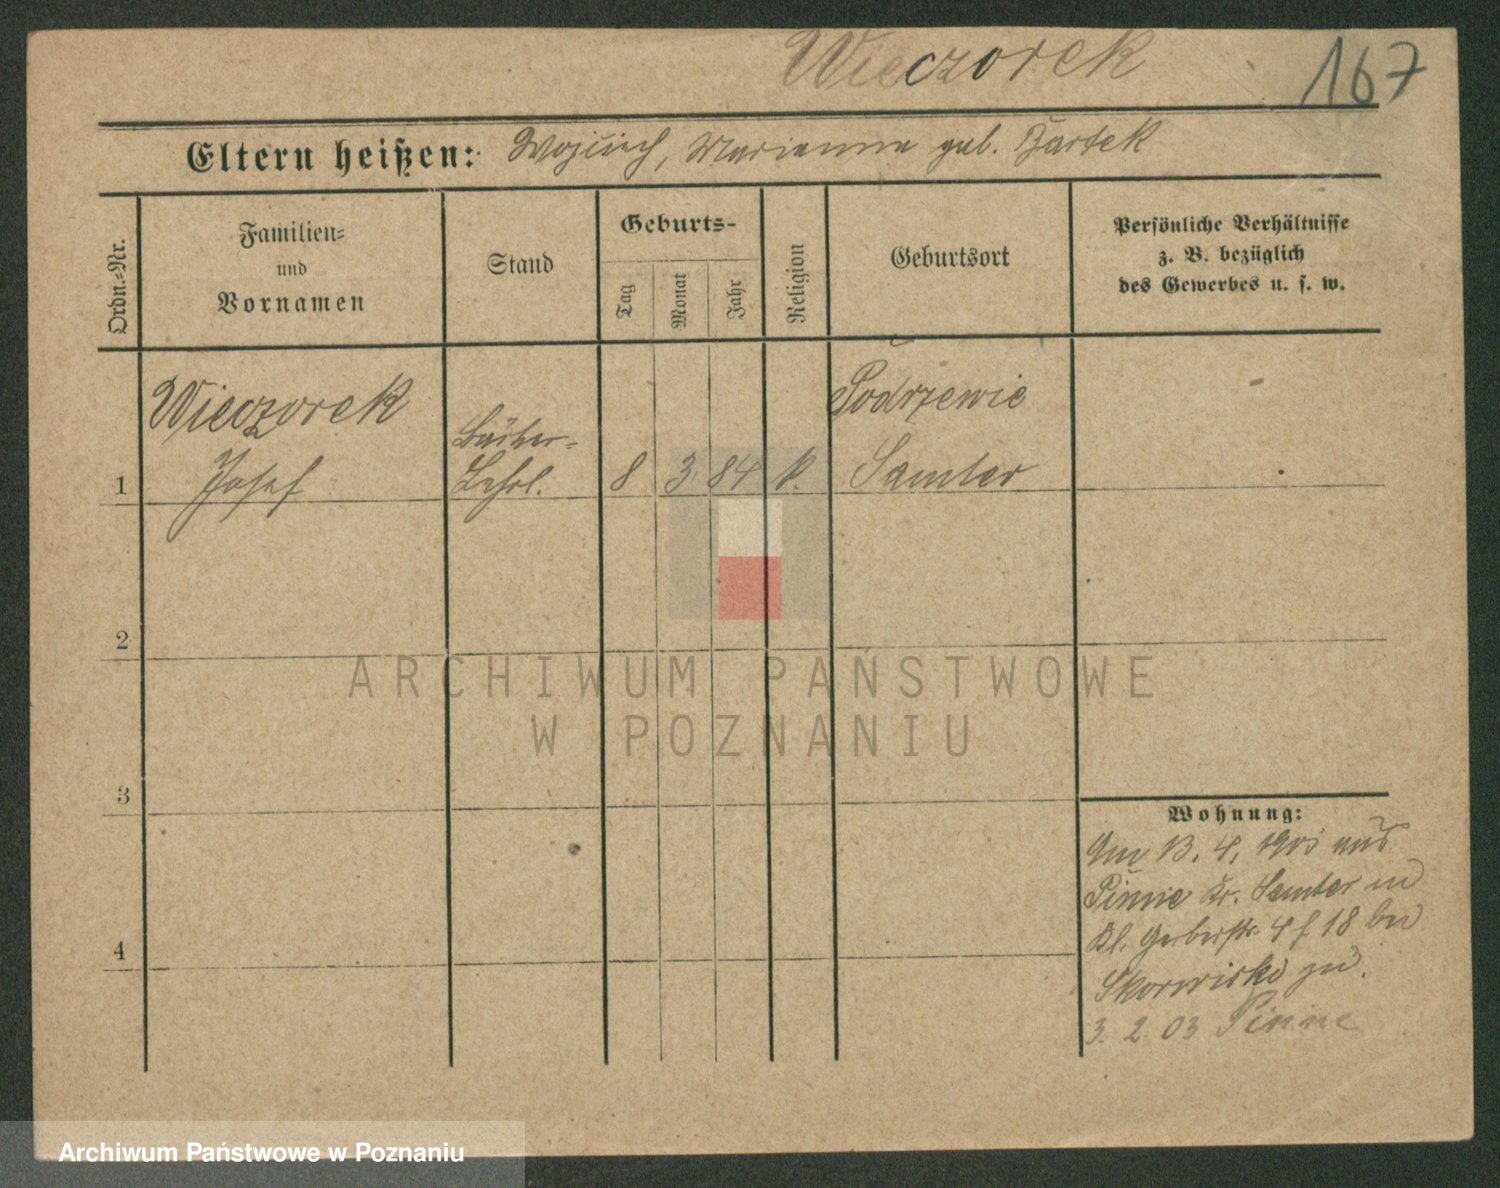 Wieczorek 167
Eltern heißen: Wojciech, Marianna geb. Bartek
Ordn.-Nr.
Familien-
und
Vornamen
Stand
Geburts-
Tag
Monat
Jahr
Religion
Geburtsort
Persönliche Verhältnisse
z. B. bezüglich
des Gewerbes u. s. w.
Wieczorek Podrzewie
Bäcker-
1 Josef Lehrl. 8 3. 84 k. Samter
2
ARCHIWUM PAŃSTWOWE
W POZNANIU
3
Wohnung:
Am 13. 4. 1901 aus
Pinne Kr. Samter in
4 Kl. Gerberstr 4 f 18 bei
zu.
3. 2. 03 Pinne
Archiwum Państwowe w Poznaniu